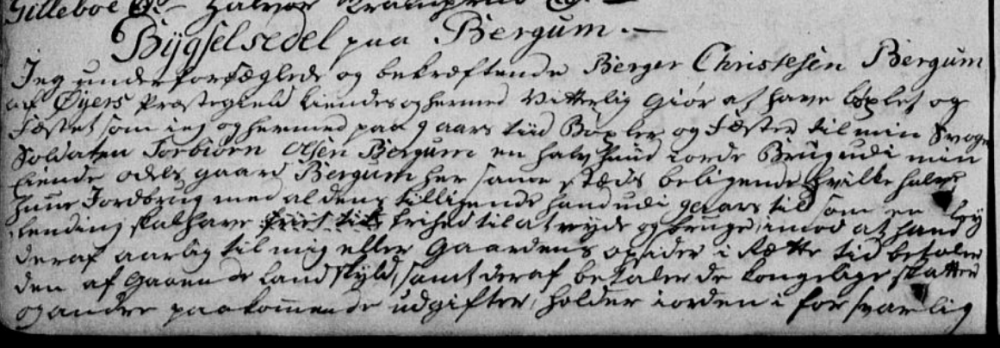 Gilleboe
Bÿgselsedel paa Bergum.
Jeg underforseglede og bekræftende Berger Christesen Bergum
af Øyers Præstegield kiendes og hermed Vitterlig Giør at have bøxlet og
Fæstet som ieg og hermed paa 9 aars tiid Bøxler og Fæster til min Svoger
Soldaten Torbiørn Olsen Bergum en halv huud iorde Brug udi min
Eiende odels gaard Bergum her samesteds beligende hvilke halve
Huus Jordbrug med al dens tilligende hand udi 9 aars tid som en
Lending skal have friehed til at nyde og bruge, imod at hand
deraf aarlig til mig eller Gaardens opsider i Rette tid betaler
den af Gaarden Landskyld, samt deraf betaler de kongelige skatter
og andre paakommende udgifter, holder iorden i forsvarlig